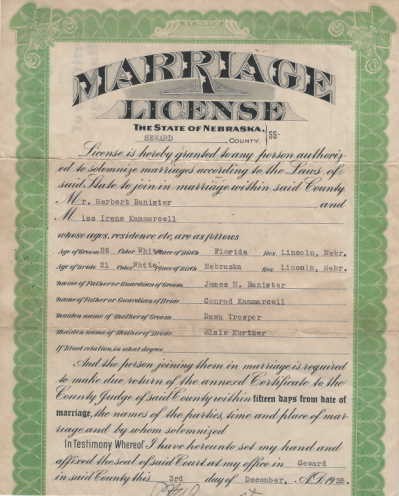 MARRIAGE
LICENSE
THE STATE OF NEBRASKA.
SEWARD COUNTY. SS·
License is hereby granted to any person authoriz-
ed to solemnize marriages according to the Laws of
said State to join in marriage within said County
Mr. Herbert Banister and
Miss Irene Kammarcell
whose ages, residence etc, are as follows
Age of Groom 26 Color White Place of Birth Florida Res Lincoln, Nebr.
Age of Bride 21 Color White Place of Birth Nebraska Res Lincoln, Nebr.
Name of Father or Guardian of Groom James N. Banister
Name of Father or Guardian of Bride Conrad Kammarcell
Maiden name of Mother of Groom Dawn Trosper
Maiden name of Mother of Bride Elsie Kurther
If blood relation, in what degree
And the person joining them in marriage is required
to make due return of the annexed Certificate to the
County Judge of said County within fifteen days from date of
marriage, the names of the parties, time and place of mar-
riage and by whom solemnized
In Testimony Whereof I have hereunto set my hand and
affixed the seal of said Court at my office in Seward
in said County this 3rd day of December, A.D. 1938.